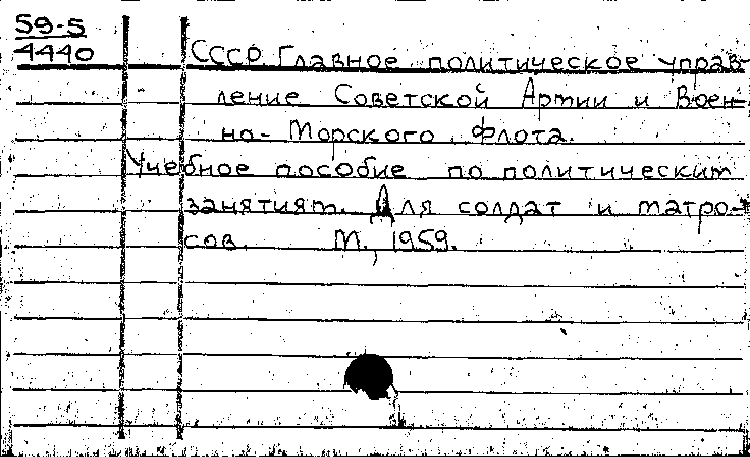 59-5
4440
СССР Главное политическое управ-
ление Советской Армии и Воен-
но-Морского Флота.
Учебное пособие по политическим
занятиям. Для солдат и матро-
сов. М., 1959.